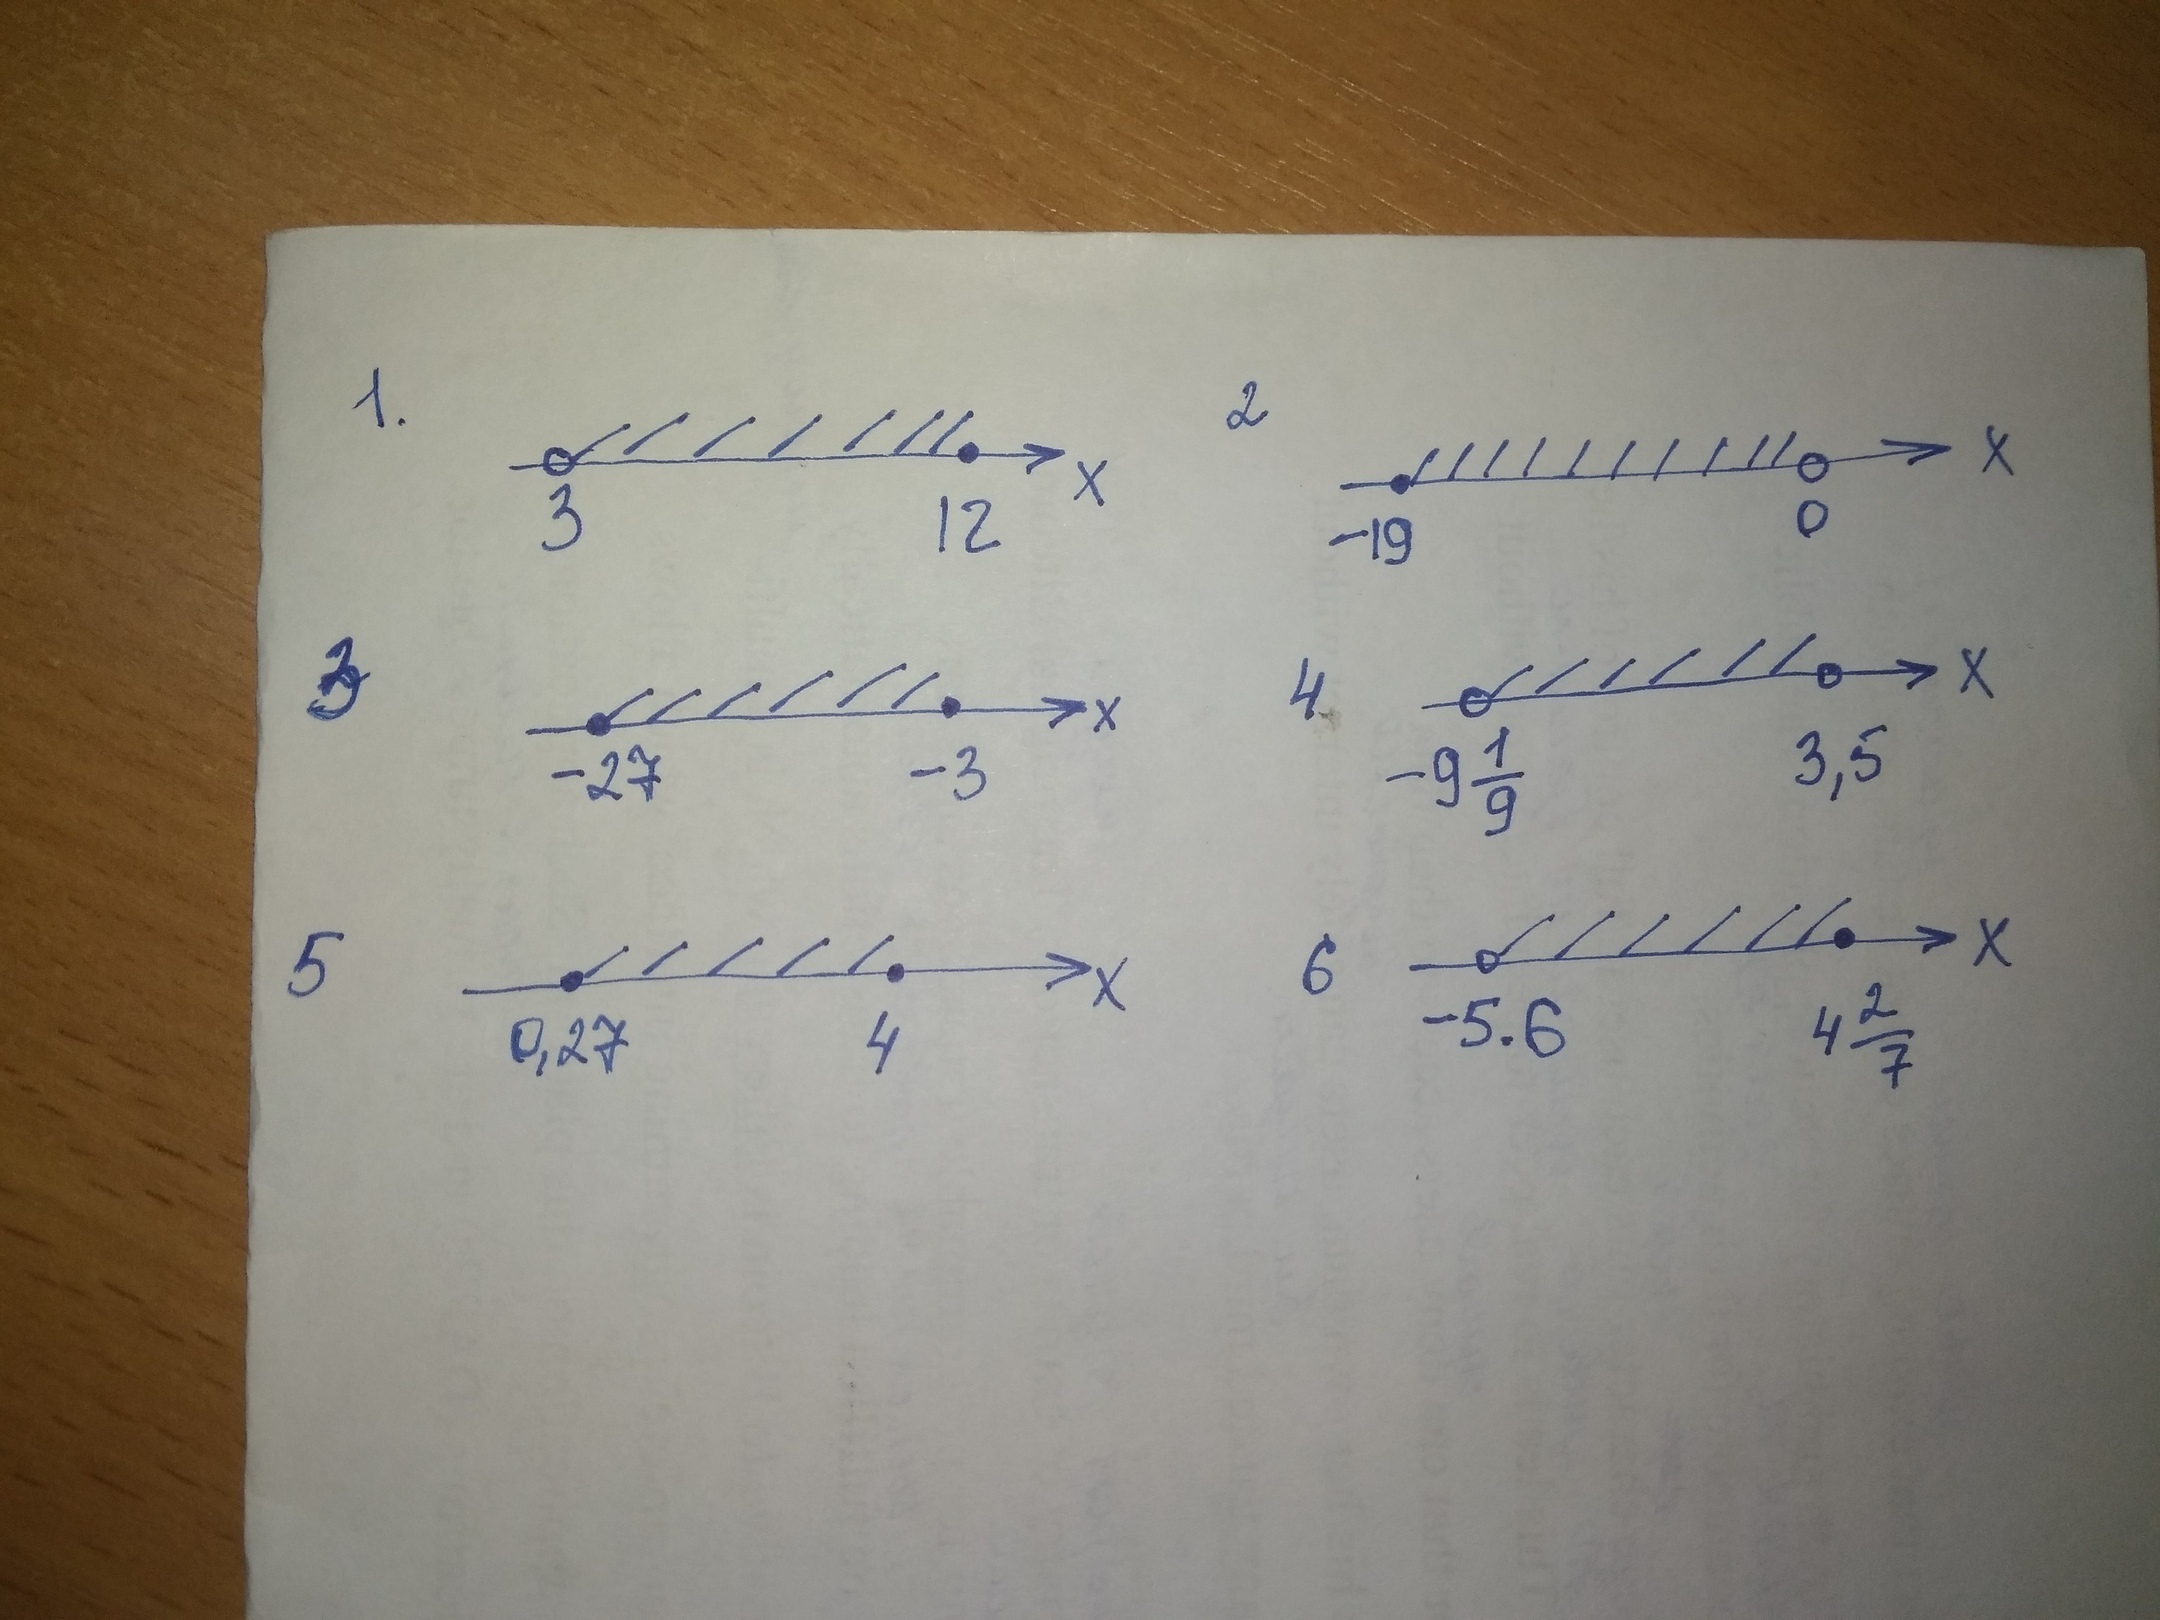 1.
3 12 x
2
-19 0 x
3
-27 -3 x
4
-9 1/9 3,5 x
5
0,27 4 x
6
-5.6 4 2/7 x